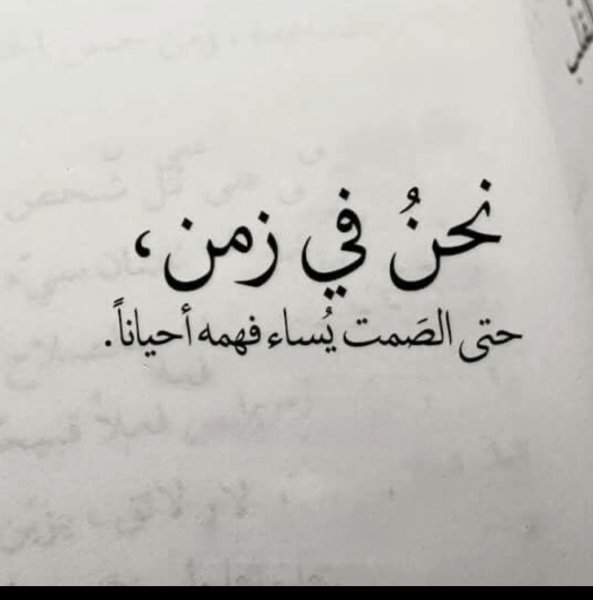 نحنُ في زمن،
حتى الصَمت يُساء فهمه أحياناً.